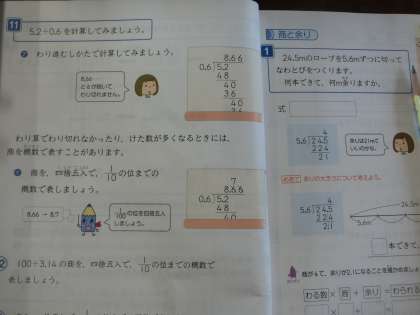 11
5.2÷0.6を計算してみましょう。
㋐ わり進むしかたで計算してみましょう。
8.66
0.6)5.2
48
40
36
40
36
わり算でわり切れなかったり、けた数が多くなるときには、
商を概数で表すことがあります。
商を、四捨五入で、1/10の位までの
概数で表しましょう。
7
8.66
0.6)5.2
48
40
8.66 → 8.7
1/100の位を四捨五入
しましょう。
② 100÷3.14の商を、四捨五入で、1/10の位までの概数で
表しましょう。
商と余り
1
24.5mのロープを5.6mずつに切って
なわとびをつくります。
何本できて、何m余りますか。
式
4
5.6)24.5
224
21
余りは21mで
いいのかな。
余りの大きさについて考えよう。
4
5.6)24.5
224
2.1
24.5m
5.6m
本できて、
商が4で、余りが2.1になることを確かめましょう
わる数×商+余り=わられる